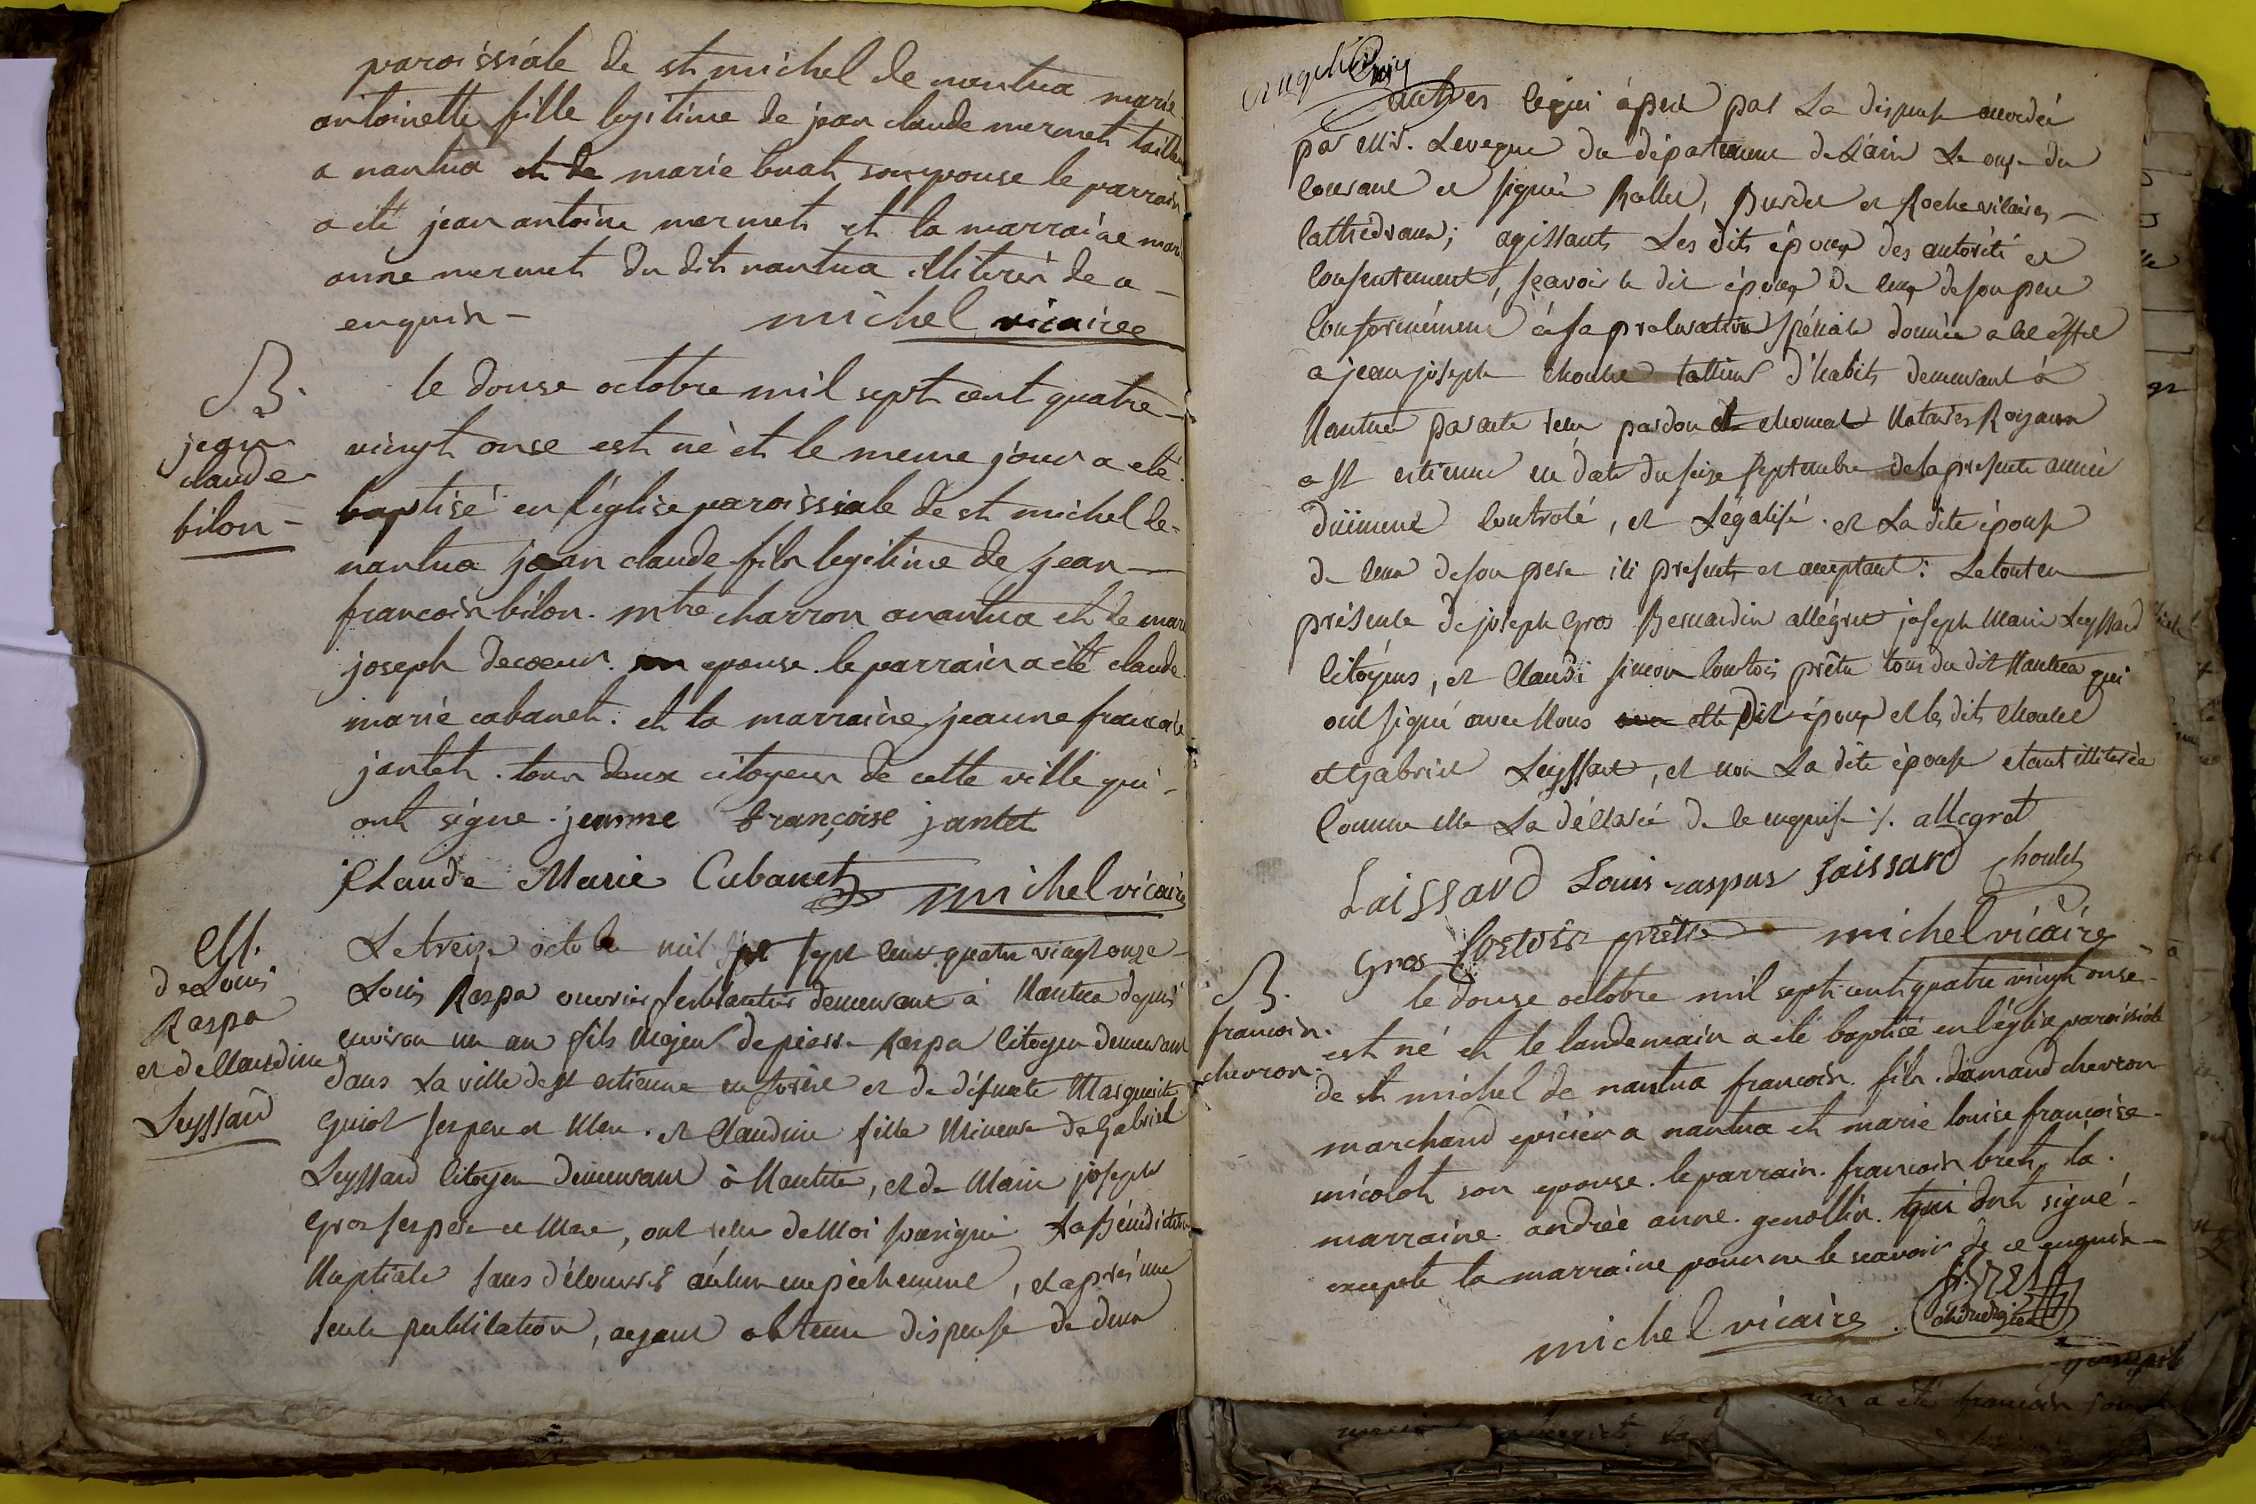 paroissiale de st michel de nantua marie
antoinette fille legitime de jean claude mermet tailleur
a nantua et de marie buat son epouse le parrain
a eté jean antoine mermet et la marraine marie
anne mermet du dit nantua illiterés de a
enquis
michel vicaire
B.
jean
claude
bilon
le douse octobre mil sept cent quatre
vingt onse est né et le meme jour a eté
baptisé en l'église paroissiale de st michel de
nantua jean claude fils legitime de jean
francois bilon. mtre charron a nantua et de marie
joseph decoeur. son epouse. le parrain a été claude
marie cabanet. et la marraine jeanne francoise
jantet. tous deux citoyens de cette ville qui
ont signe. jeanne françoise jantet
Claude Marie Cabanet michel vicaire
M.
de Louis
Raspa
et de Claudine
Leyssard
Le treize octobre mil sept cent quatre vingt onze
Louis Raspa ouvrier ferblantier demeurant à Nantua depuis
environ un an fils Majeur de pierre Raspa Citoyen demeurant
dans La ville de st estienne en forêse et de défunte Marguerite
Guiot ses pere et Mere. et Claudine fille Mineure de Gabriel
Leyssard Citoyen demeurant à Nantua, et de Marie joseph
Gros ses pere et Mere, ont reçu de Moi soussigné La Bénédiction
Nuptiale sans découvrir aucun empêchement, et après une
seule publication, ayant obtenu dispense de deux
autres ce qui apert par La dispense accordée
par Mr. Leveque du département de L'ain Le onze du
Courant et signée Rollet, Burdet et Roche vicaires
Cathédraux; agissants Les dits époux des autorité et
Consentement, sçavoir le dit époux de ceux de son pere
Conformément à sa procuration spéciale donnée a cet effet
a jean joseph Choulet tailleur d'habits demeurant à
Nantua par acte reçu pardon et chomat Notaires Royaux
a St estienne en date du seize septembre de la presente année
duëment Controlé, et Légalisé. et La dite épouse
de ceux de son pere ici présent et acceptant: Le tout en
présence de joseph Gros Bernardin allégret joseph Marie Leyssard
Citoyens, et Claude simeon Courtois prêtre tous du dit Nantua qui
ont signé avec Nous le Dit époux et les dits Choulet
et Gabriel Leyssard, et non La dite épouse etant illiterée
Comme elle La déclaré de ce enquise ./. allegret
Laissard Louis raspas Laissard Choulet
Gros Cortois prêtre michel vicaire
B.
francois.
chevron.
le douse octobre mil sept cent quatre vingt onse
est né et le landemain a été baptisé en l'église paroissiale
de st michel de nantua francois. fils. damand chevron
marchand epicier a nantua et marie louise françoise
micolot son epouse. le parrain. francois bret. la
marraine. andrée anne. genollin. qui ont signé
excepte la marraine pour ne le scavoir de ce enquise
michel vicaire
f. BRET
chirurgien